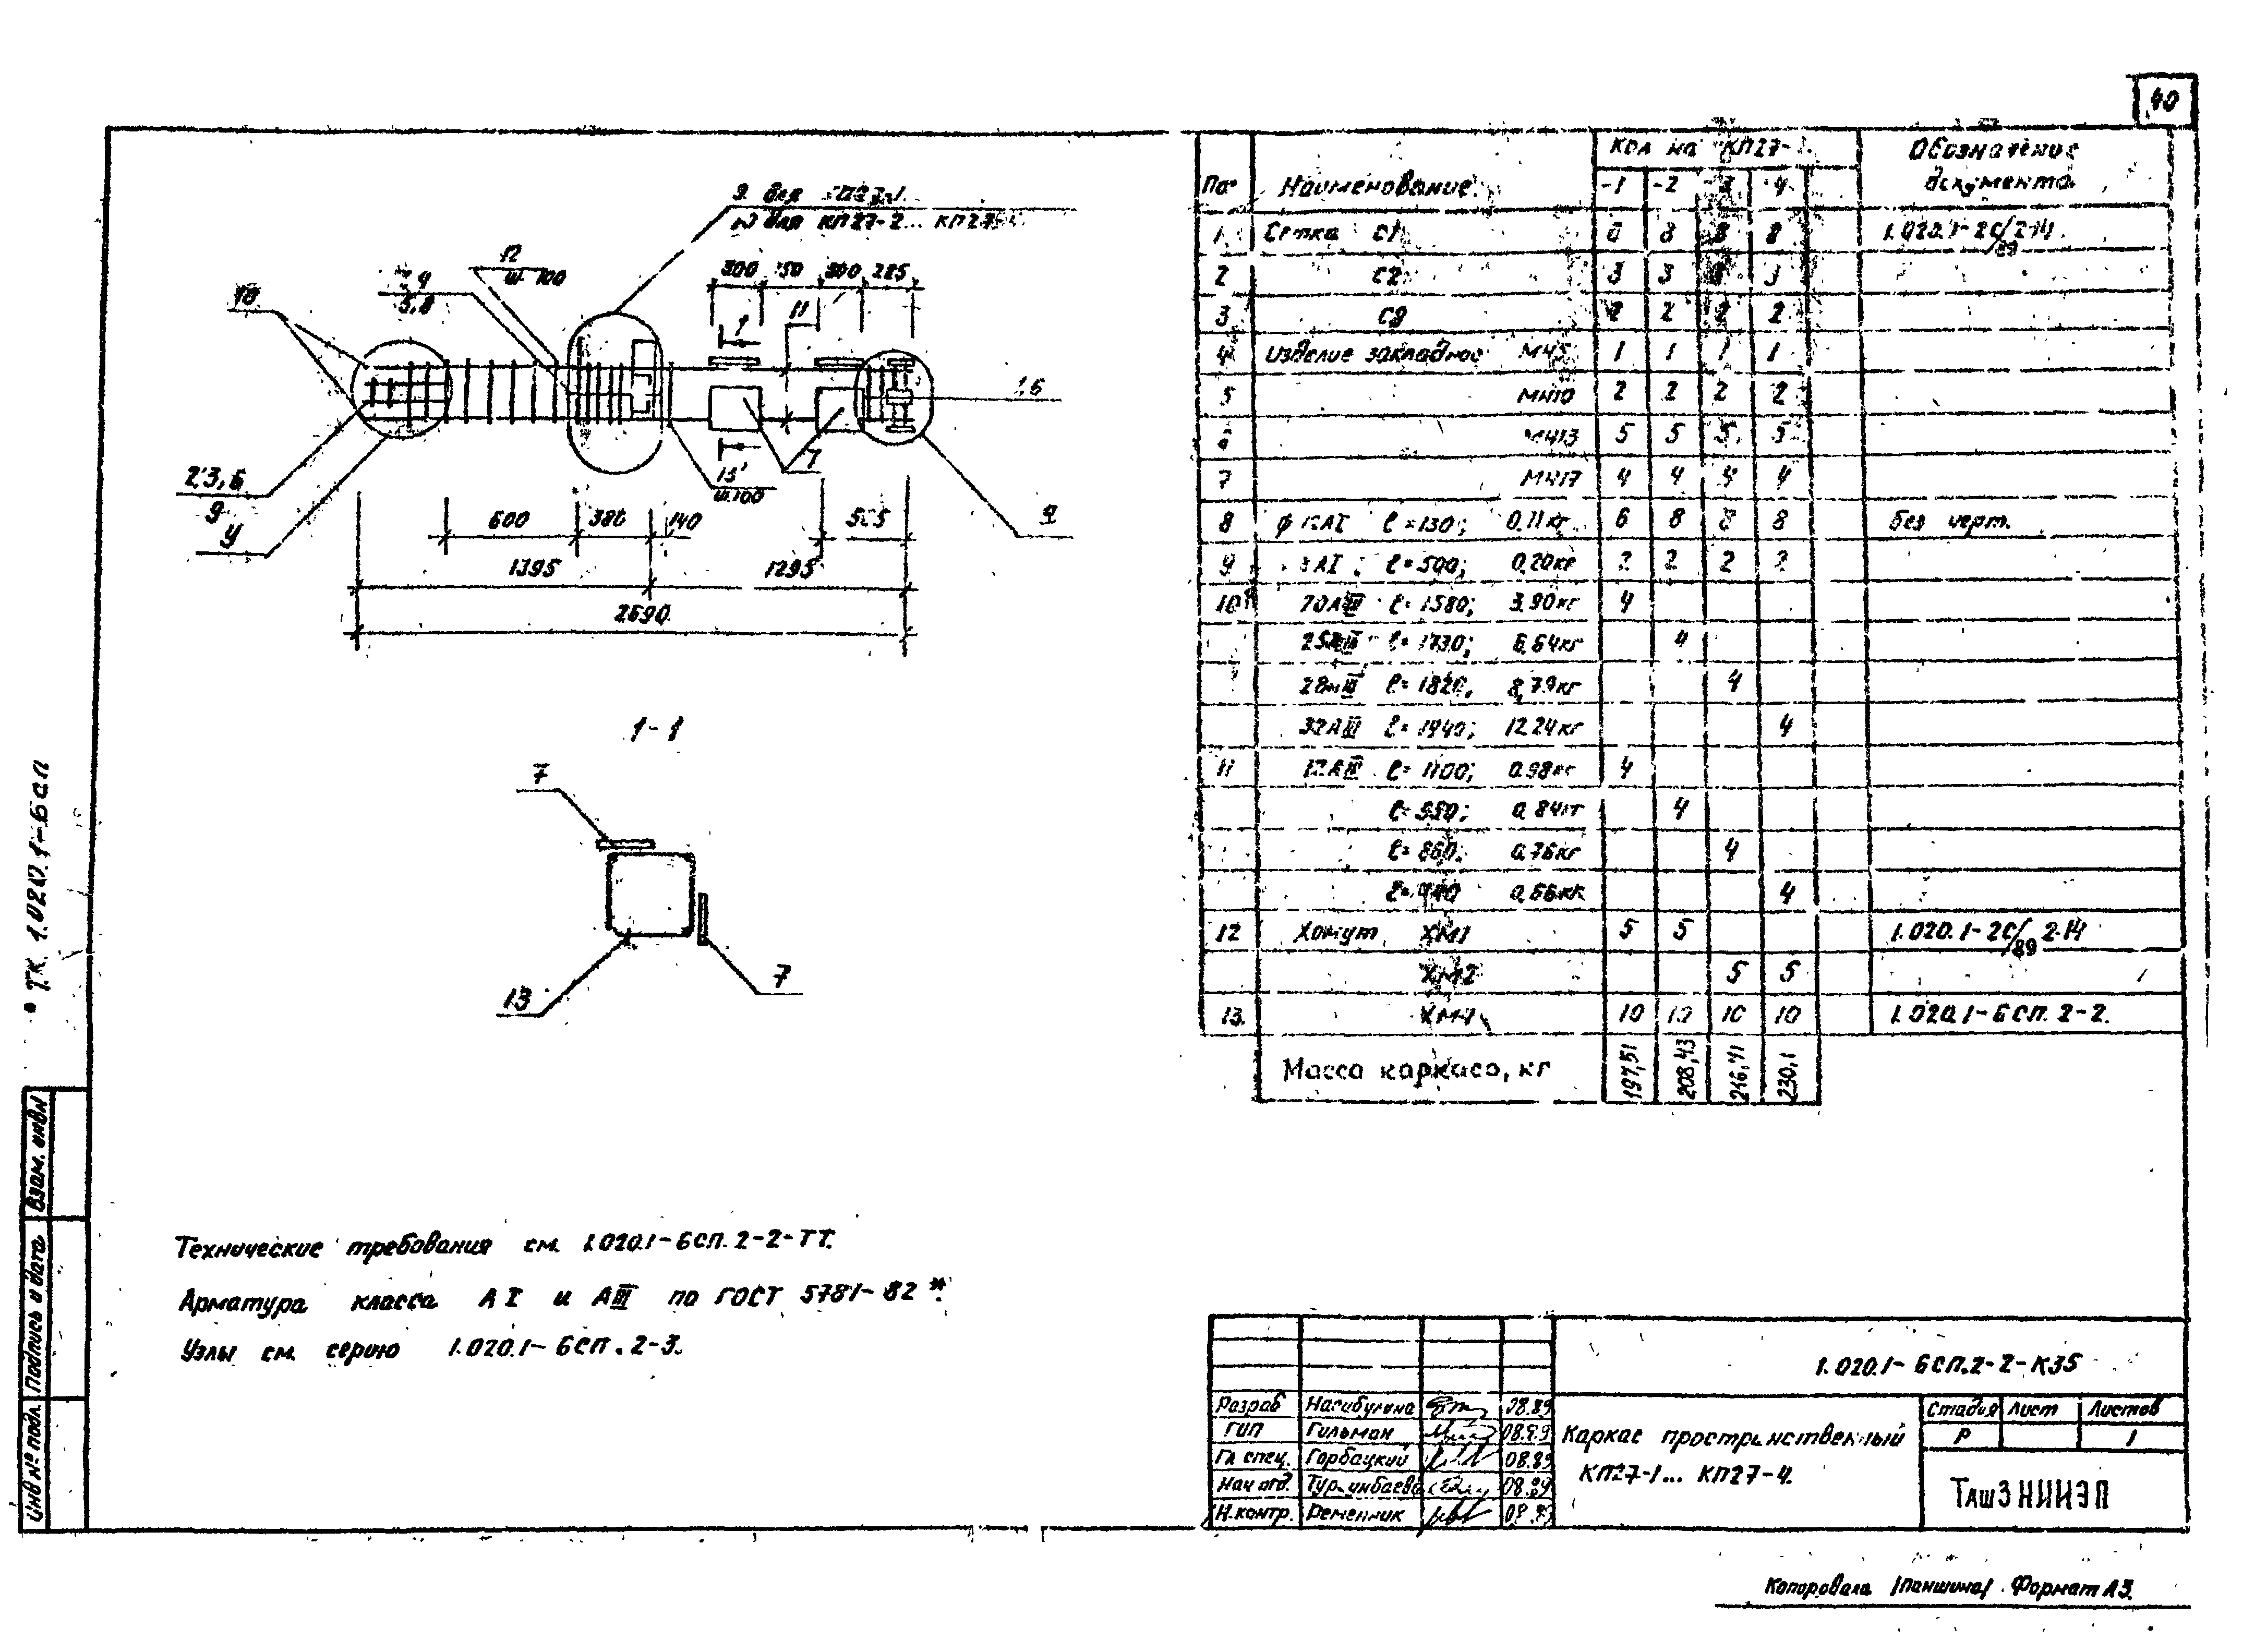 40
9 для КП27-1
КП27-2... КП27-
12
ш. 100
4
5,8
10
300 150 300 225
11
1
16
2,3,6
9
У
13
ш.100
7
9
600 380 140
1395 1295
2690
1-1
7
13
7
Поз Наименование Кол на КП27- Обозначение документа
-1 -2 -3 -4
1 Сетка С1 8 8 8 1.020.1-2С/89 2-14
2 С2 3 3 3
3 С9 2 2 2 2
4 Изделие закладное МН5 1 1 1 1
5 МН10 2 2 2 2
6 МН13 5 5 5 5
7 МН17 4 4 4 4
8 φ 12АI ℓ=130; 0.11кг 6 8 8 8 без черт.
9 8АI; ℓ=500; 0,20кг 2 2 2 2
10 20АIII ℓ=1580; 3.90кг 4
25АIII ℓ=1730; 6,64кг 4
28АIII ℓ=1820; 8,79кг 4
32АIII ℓ=1940; 12.24кг 4
11 12АIII ℓ=1100; 0.98кг 4
ℓ=950; 0,84кг 4
ℓ=860; 0,76кг 4
ℓ=740 0,66кг 4
12 Хомут ХМ1 5 5 1.020.1-2С/89 2-14
ХМ2 5 5
13. ХМ4 10 10 10 10 1.020.1-6СП. 2-2.
Масса каркаса, кг 197,51 208,43 216,71 230,1
Т.К. 1.020.1-6сп
Взам. инвN
Подпись и дата
Инв № подл.
Технические требования см. 1.020.1-6СП. 2-2-ТТ.
Арматура класса АI и АIII по ГОСТ 5781-82*.
Узлы см. серию 1.020.1-6СП. 2-3.
1.020.1-6СП.2-2-К35
Разраб Насибулина 08.89
ГИП Гильман 08.89
Гл спец. Горбацкий 08.89
Нач отд. Турсунбаева 08.89
Н.контр. Ременник 08.89
Каркас пространственный
КП27-1... КП27-4.
Стадия Лист Листов
Р 1
ТашЗНИИЭП
Копировала /Паньшина/ Формат А3.